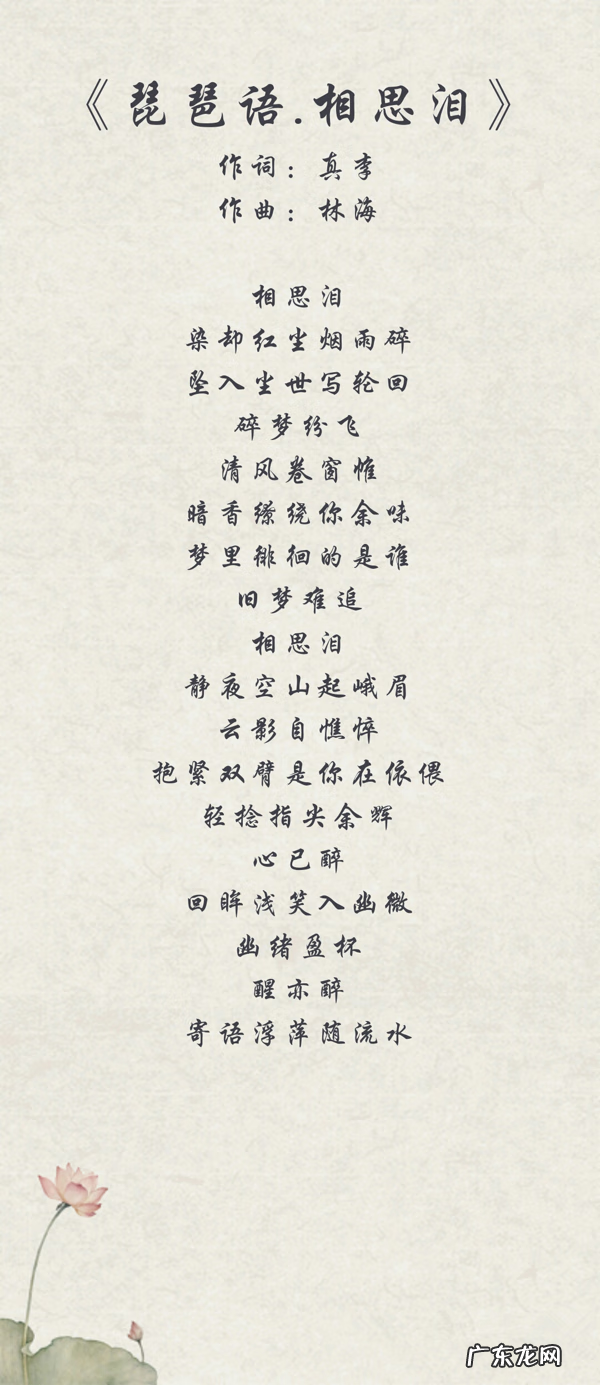 《琵琶语.相思泪》
作词：真李
作曲：林海
相思泪
染却红尘烟雨碎
坠入尘世写轮回
碎梦纷飞
清风卷窗帷
暗香缭绕你余味
梦里徘徊的是谁
旧梦难追
相思泪
静夜空山起峨眉
云影自憔悴
抱紧双臂是你在依偎
轻捻指尖余辉
心已醉
回眸浅笑入幽微
幽绪盈杯
醒亦醉
寄语浮萍随流水
广东龙网